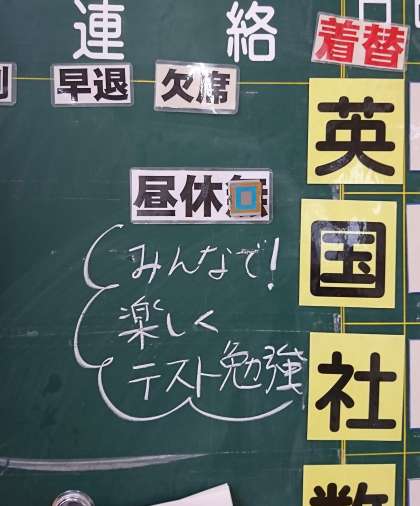 連絡
着替
早退
欠席
英
昼休
みんなで!
国
楽しく
テスト勉強
社
数